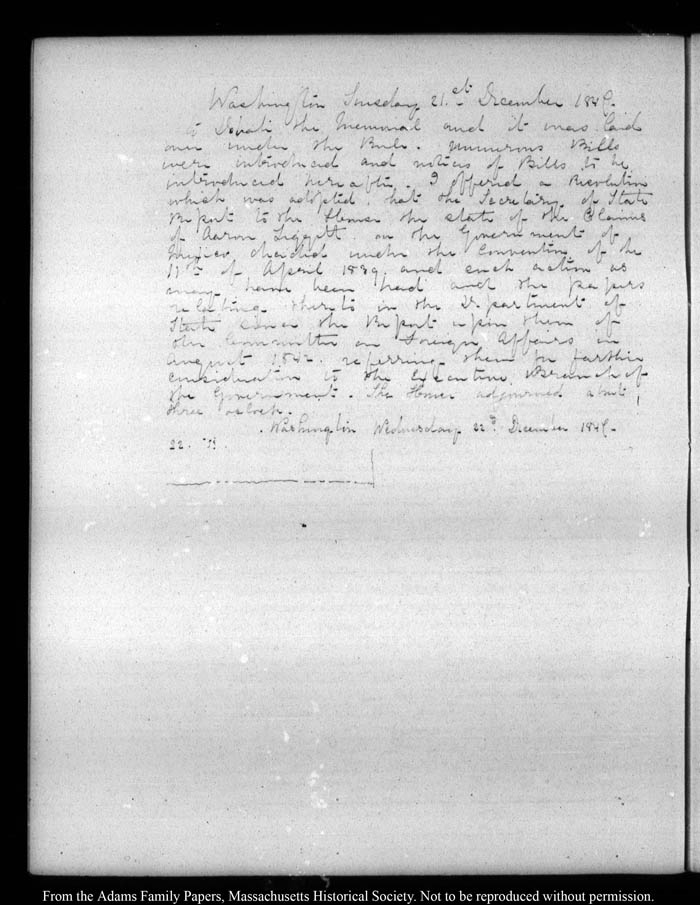 Washington Tuesday 21.st December 1847.
to Debate the Memorial and it was laid
over under the Rule. Numerous Bills
were introduced and notices of Bills to be
introduced hereafter. I offered a Resolution
which was adopted, that the Secretary of State
Report to the House the state of the Claims
of Aaron Leggett. on the Government of
Mexico, decided under the Convention of the
11th of April 1839, and such action as
may have been had and the papers
relating thereto in the Department of
State since the Report upon them of
the Committee on Foreign Affairs in
August 1842. referring them for further
consideration to the Executive Branch of
the Government. The House adjourned about
three oclock.
Washington Wednesday 22.d December 1847.
22.
From the Adams Family Papers, Massachusetts Historical Society. Not to be reproduced without permission.